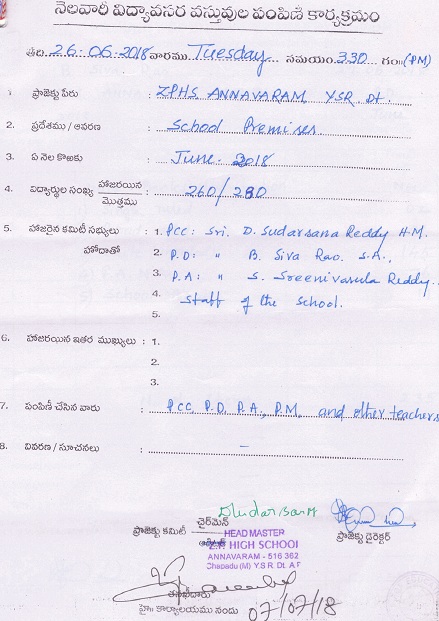 నెలవారీ విద్యావసర వస్తువుల పంపిణీ కార్యక్రమం
తేది 26-06-2018 వారము Tuesday సమయం 3.30 గం॥ (PM)
1 ప్రాజెక్టు పేరు : ZPHS ANNAVARAM, YSR Dt.
2. ప్రదేశము / ఆవరణ : School Premises
3. ఏ నెల కొఱకు : June - 2018
4. విద్యార్థుల సంఖ్య హాజరయిన / మొత్తము : 260/280
5. హాజరైన కమిటీ సభ్యులు : 1. PCC: Sri. D. Sudarsana Reddy H.M.
హోదాతో 2. P.D: " B. Siva Rao. S.A.,
3. P.A: " S. Sreenivasula Reddy.
4. Staff of the School.
5.
6. హాజరయిన ఇతర ముఖ్యులు : 1.
2.
3.
7. పంపిణీ చేసిన వారు : PCC, P.D, P.A., P.M, and other teachers
8. వివరణ / సూచనలు : -
ఛైర్‌మెన్
ప్రాజెక్టు కమిటీ
ప్రాజెక్టు డైరెక్టర్
HEAD MASTER
Z.P. HIGH SCHOOL
ANNAVARAM - 516 362
Chapadu (M) Y.S.R. Dt. A.P
హై॥ కార్యాలయము నందు 07/07/18